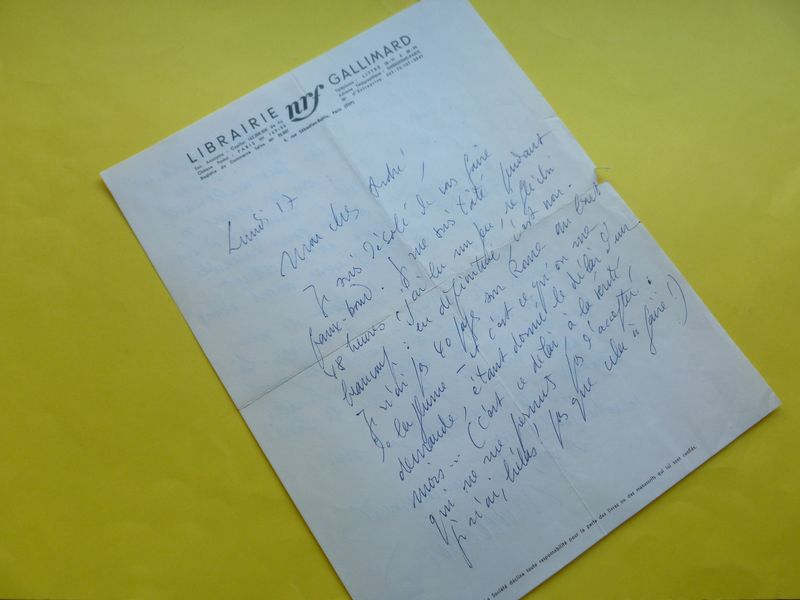 LIBRAIRIE nrf GALLIMARD
5, rue Sébastien-Bottin, Paris (VIIe)
Lundi 17
Mon cher André,
Je suis désolé de vous faire
faux-bond. Je me suis tâté pendant
48 heures, j'ai lu un peu, réfléchi
beaucoup : en définitive, c'est non.
Je n'ai pas 40 pages sur Rome au bout
de la plume – et c'est ce qu'on me
demande, étant donné le délai d'un
mois... (c'est ce délai à la vérité
qui ne me permet pas d'accepter :
je n'ai, hélas ! pas que cela à faire !)
Société décline toute responsabilité pour la perte des livres ou des manuscrits qui lui sont confiés.